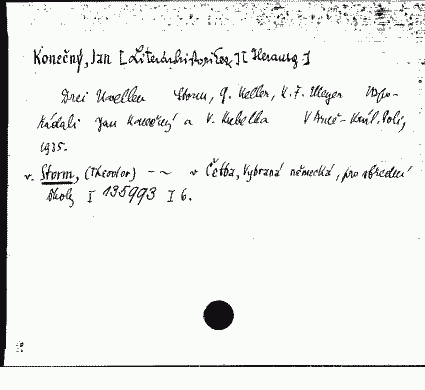 Konečný, Jan [Literárhistoriker] [Herausg.]
Drei Novellen Storm, G. Keller, K. F. Meyer Uspo-
řádali Jan Konečný a V. Kubelka V Brně - Král. Poli,
1935.
v. Storm, (Theodor) - ~ v Četba, Vybraná německá, pro střední
školy I 135993 I 6.